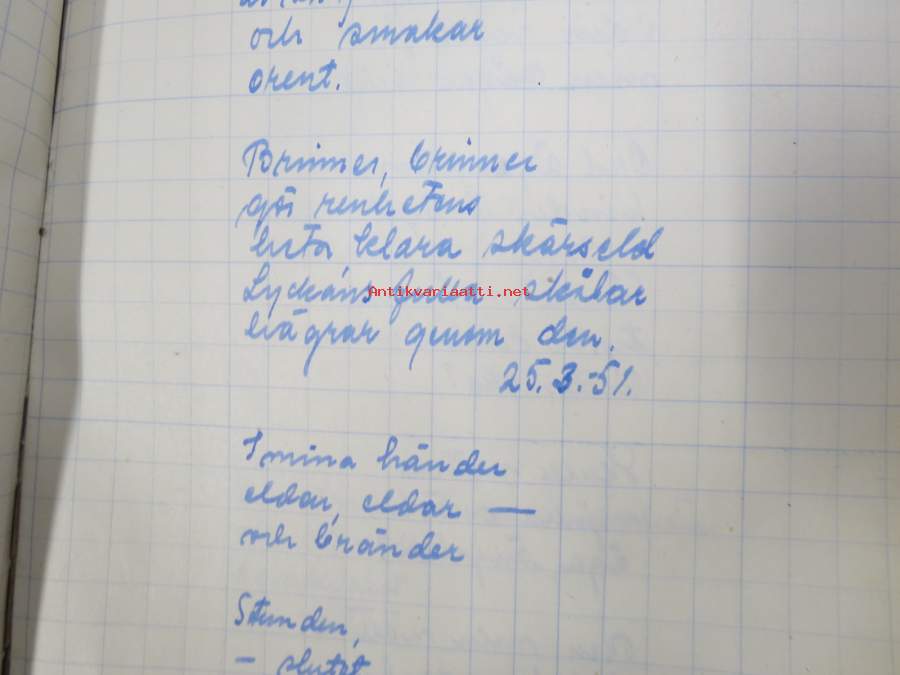 och smakar
orent.
Brinner, brinner
gör renhetens
heta klara skärseld
Antikvariaatti.net
hägrar genom den.
25.3.-51.
I mina händer
eldar, eldar —
och bränder
Stunden,
— slutet